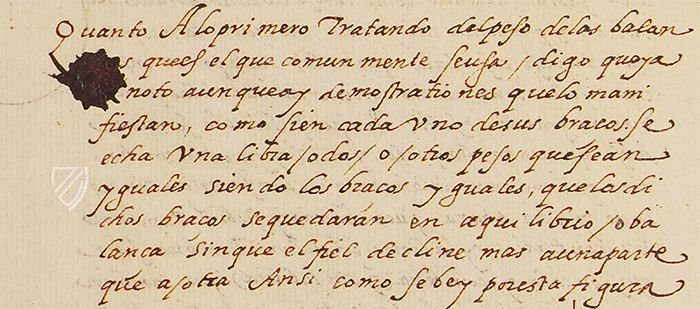 Quanto A lo primero Tratando del peso de las balan
s que es el que comunmente se usa / digo que ya
noto aunque ay demostrationes que lo mani
fiestan, como si en cada uno de sus bracos. se
echa una libra / o dos / o / otros pesos que sean
yguales siendo los bracos yguales, que los di
chos bracos se quedarán en aequilibrio / o ba
lanca sin que el fiel decline mas a una parte
que a / otra Ansi como se be y por esta figura